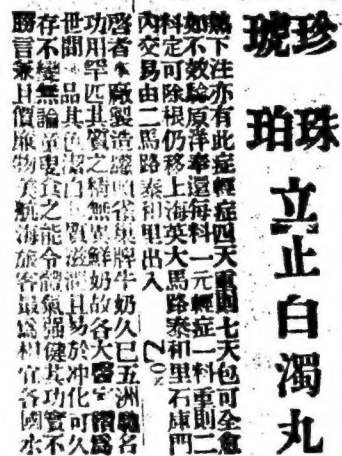 珍珠
琥珀
立止白濁丸
熱下注亦有此症輕症四天重則七天包可全愈
如不效驗原洋奉還每料一元輕症一料重則二
料定可除根仍移上海英大馬路泰和里石庫門
內交易由二馬路泰和里出入
啓者本廠製造爐雀巢牌牛奶久已五洲馳名
功用罕匹其質之精無異鮮奶故各大醫官稱爲
世間一品其色潔白其質滋潤且易於沖化可久
存不變無論嬰食之能令體氣强健其功實不
勝言兼且價廉物美航海旅客最爲相宜各國水